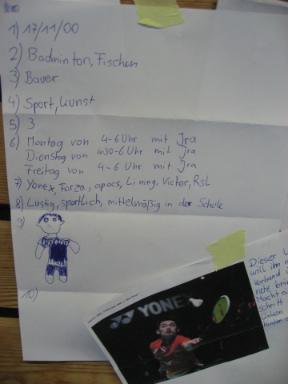 1) 17/11/00
2) Badminton, Fischen
3) Bauer
4) Sport, Kunst
5) 3
6) Montag von 4-6 Uhr mit Jra
Dienstag von 430-6 Uhr mit Jra
Freitag von 4-6 Uhr mit Jra
7) Yonex, Forza, apacs, Li ning, Victor, RSL
8) Lustig, sportlich, mittelmäßig in der Schule
9)
10)
YONEX
Dieser
will ihn